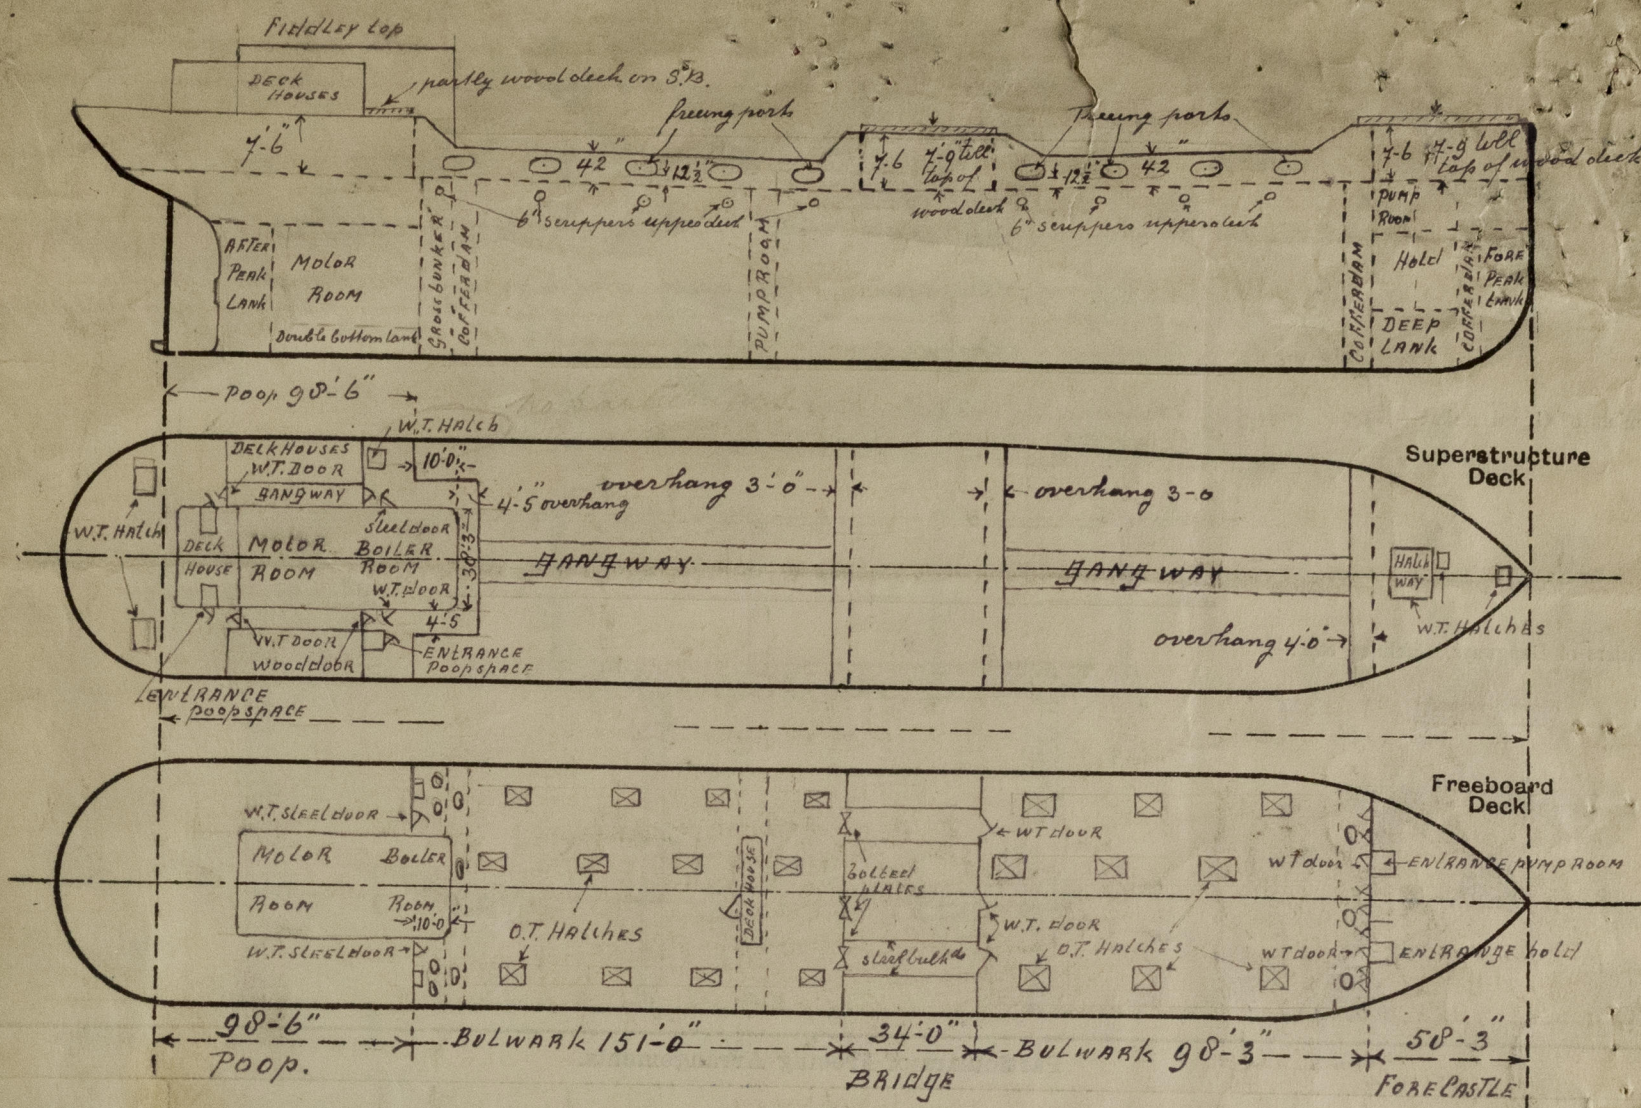 FIDDLEY top
DECK
HOUSES
partly wood deck on S.B.
freeing ports
Freeing ports
7'-6"
42"
12½"
7-6
7'-9" till
top of
wood deck
12½"
42"
7-6
7-9 till
top of wood deck
6" scuppers upperdeck
6" scuppers upperdeck
AFTER
PEAK
TANK
MOTOR
ROOM
Double bottom tank
CROSSBUNKER
COFFERDAM
PUMPROOM
COFFERDAM
PUMP
ROOM
Hold
DEEP
TANK
COFFERDAM
FORE
PEAK
TANK
Poop 98'-6"
W.T. Hatch
DECKHOUSES
W.T. DOOR
GANGWAY
10'-0"
4'-5" overhang
overhang 3'-0"
overhang 3-0
Superstructure
Deck
W.T. Hatch
DECK
HOUSE
MOTOR
ROOM
Steeldoor
BOILER
ROOM
W.T. door
38'-3"
GANGWAY
GANGWAY
HATCH
WAY
W.T. HATCHES
4-5
W.T DOOR
Wooddoor
ENTRANCE
Poopspace
overhang 4'-0"
ENTRANCE
poopspace
Freeboard
Deck
W.T. Steeldoor
MOTOR
ROOM
BOILER
ROOM
10'-0"
W.T. Steeldoor
O.T. Hatches
DECKHOUSE
bolted
plates
steel bulkds
WT door
W.T. door
O.T. Hatches
WT door
ENTRANCE PUMPROOM
WT door
ENTRANGE hold
98'-6"
Poop.
BULWARK 151'-0"
34'-0"
BRIDGE
BULWARK 98'-3"
58'-3"
FORECASTLE